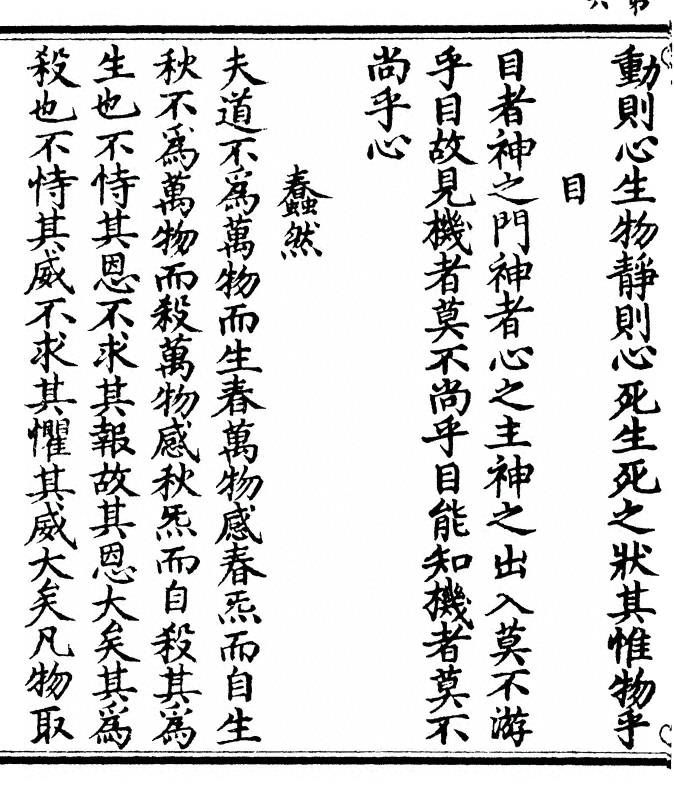 動則心生物靜則心死生死之狀其惟物乎
目
目者神之門神者心之主神之出入莫不游
乎目故見機者莫不尚乎目能知機者莫不
尚乎心
蠢然
夫道不爲萬物而生春萬物感春炁而自生
秋不爲萬物而殺萬物感秋炁而自殺其爲
生也不恃其恩不求其報故其恩大矣其爲
殺也不恃其威不求其懼其威大矣凡物取